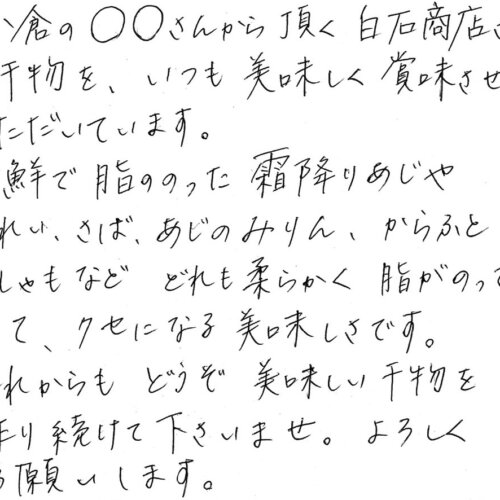 倉の〇〇さんから頂く白石商店さ
干物を、いつも美味しく賞味させ
ただいています。
鮮で脂ののった霜降りあじや
れい、さば、あじのみりん、からふと
しゃもなど どれも柔らかく脂がのって
て、クセになる美味しさです。
れからもどうぞ美味しい干物を
作り続けて下さいませ。よろしく
お願いします。